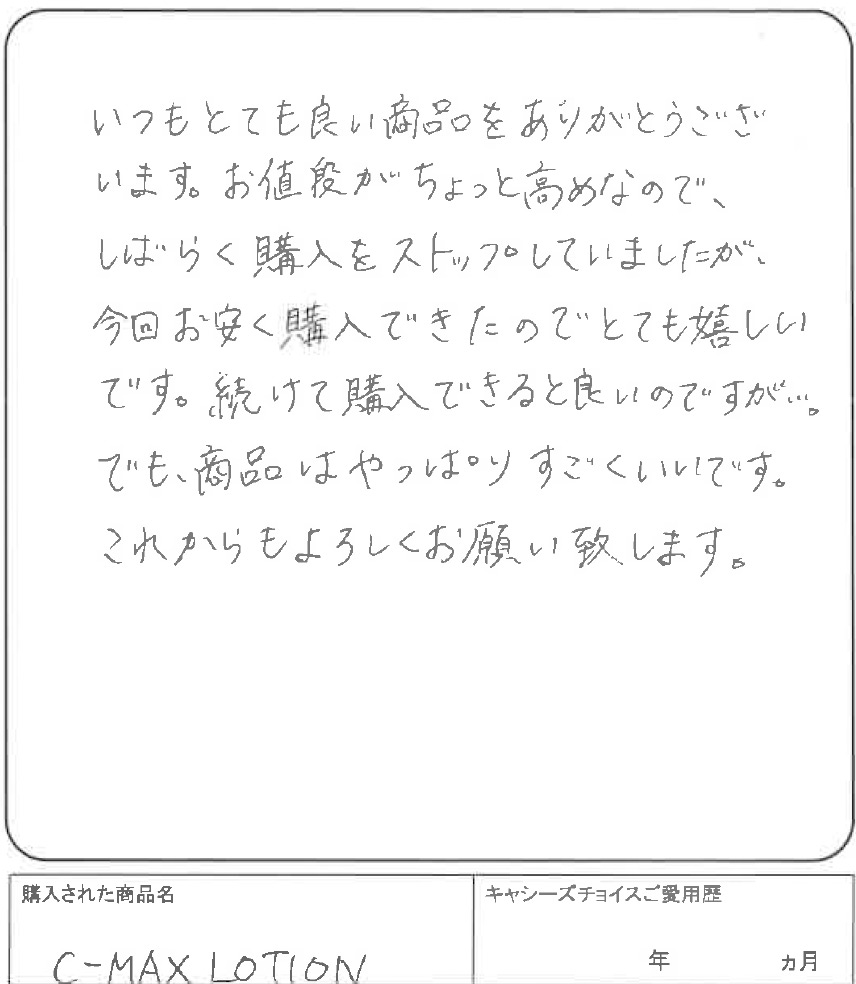 いつもとても良い商品をありがとうござ
います。お値段がちょっと高めなので、
しばらく購入をストップしていましたが、
今回お安く購入できたのでとても嬉しい
です。続けて購入できると良いのですが…。
でも、商品はやっぱりすごくいいです。
これからもよろしくお願い致します。
購入された商品名
キャシーズチョイスご愛用歴
C-MAX LOTION
年 ヵ月